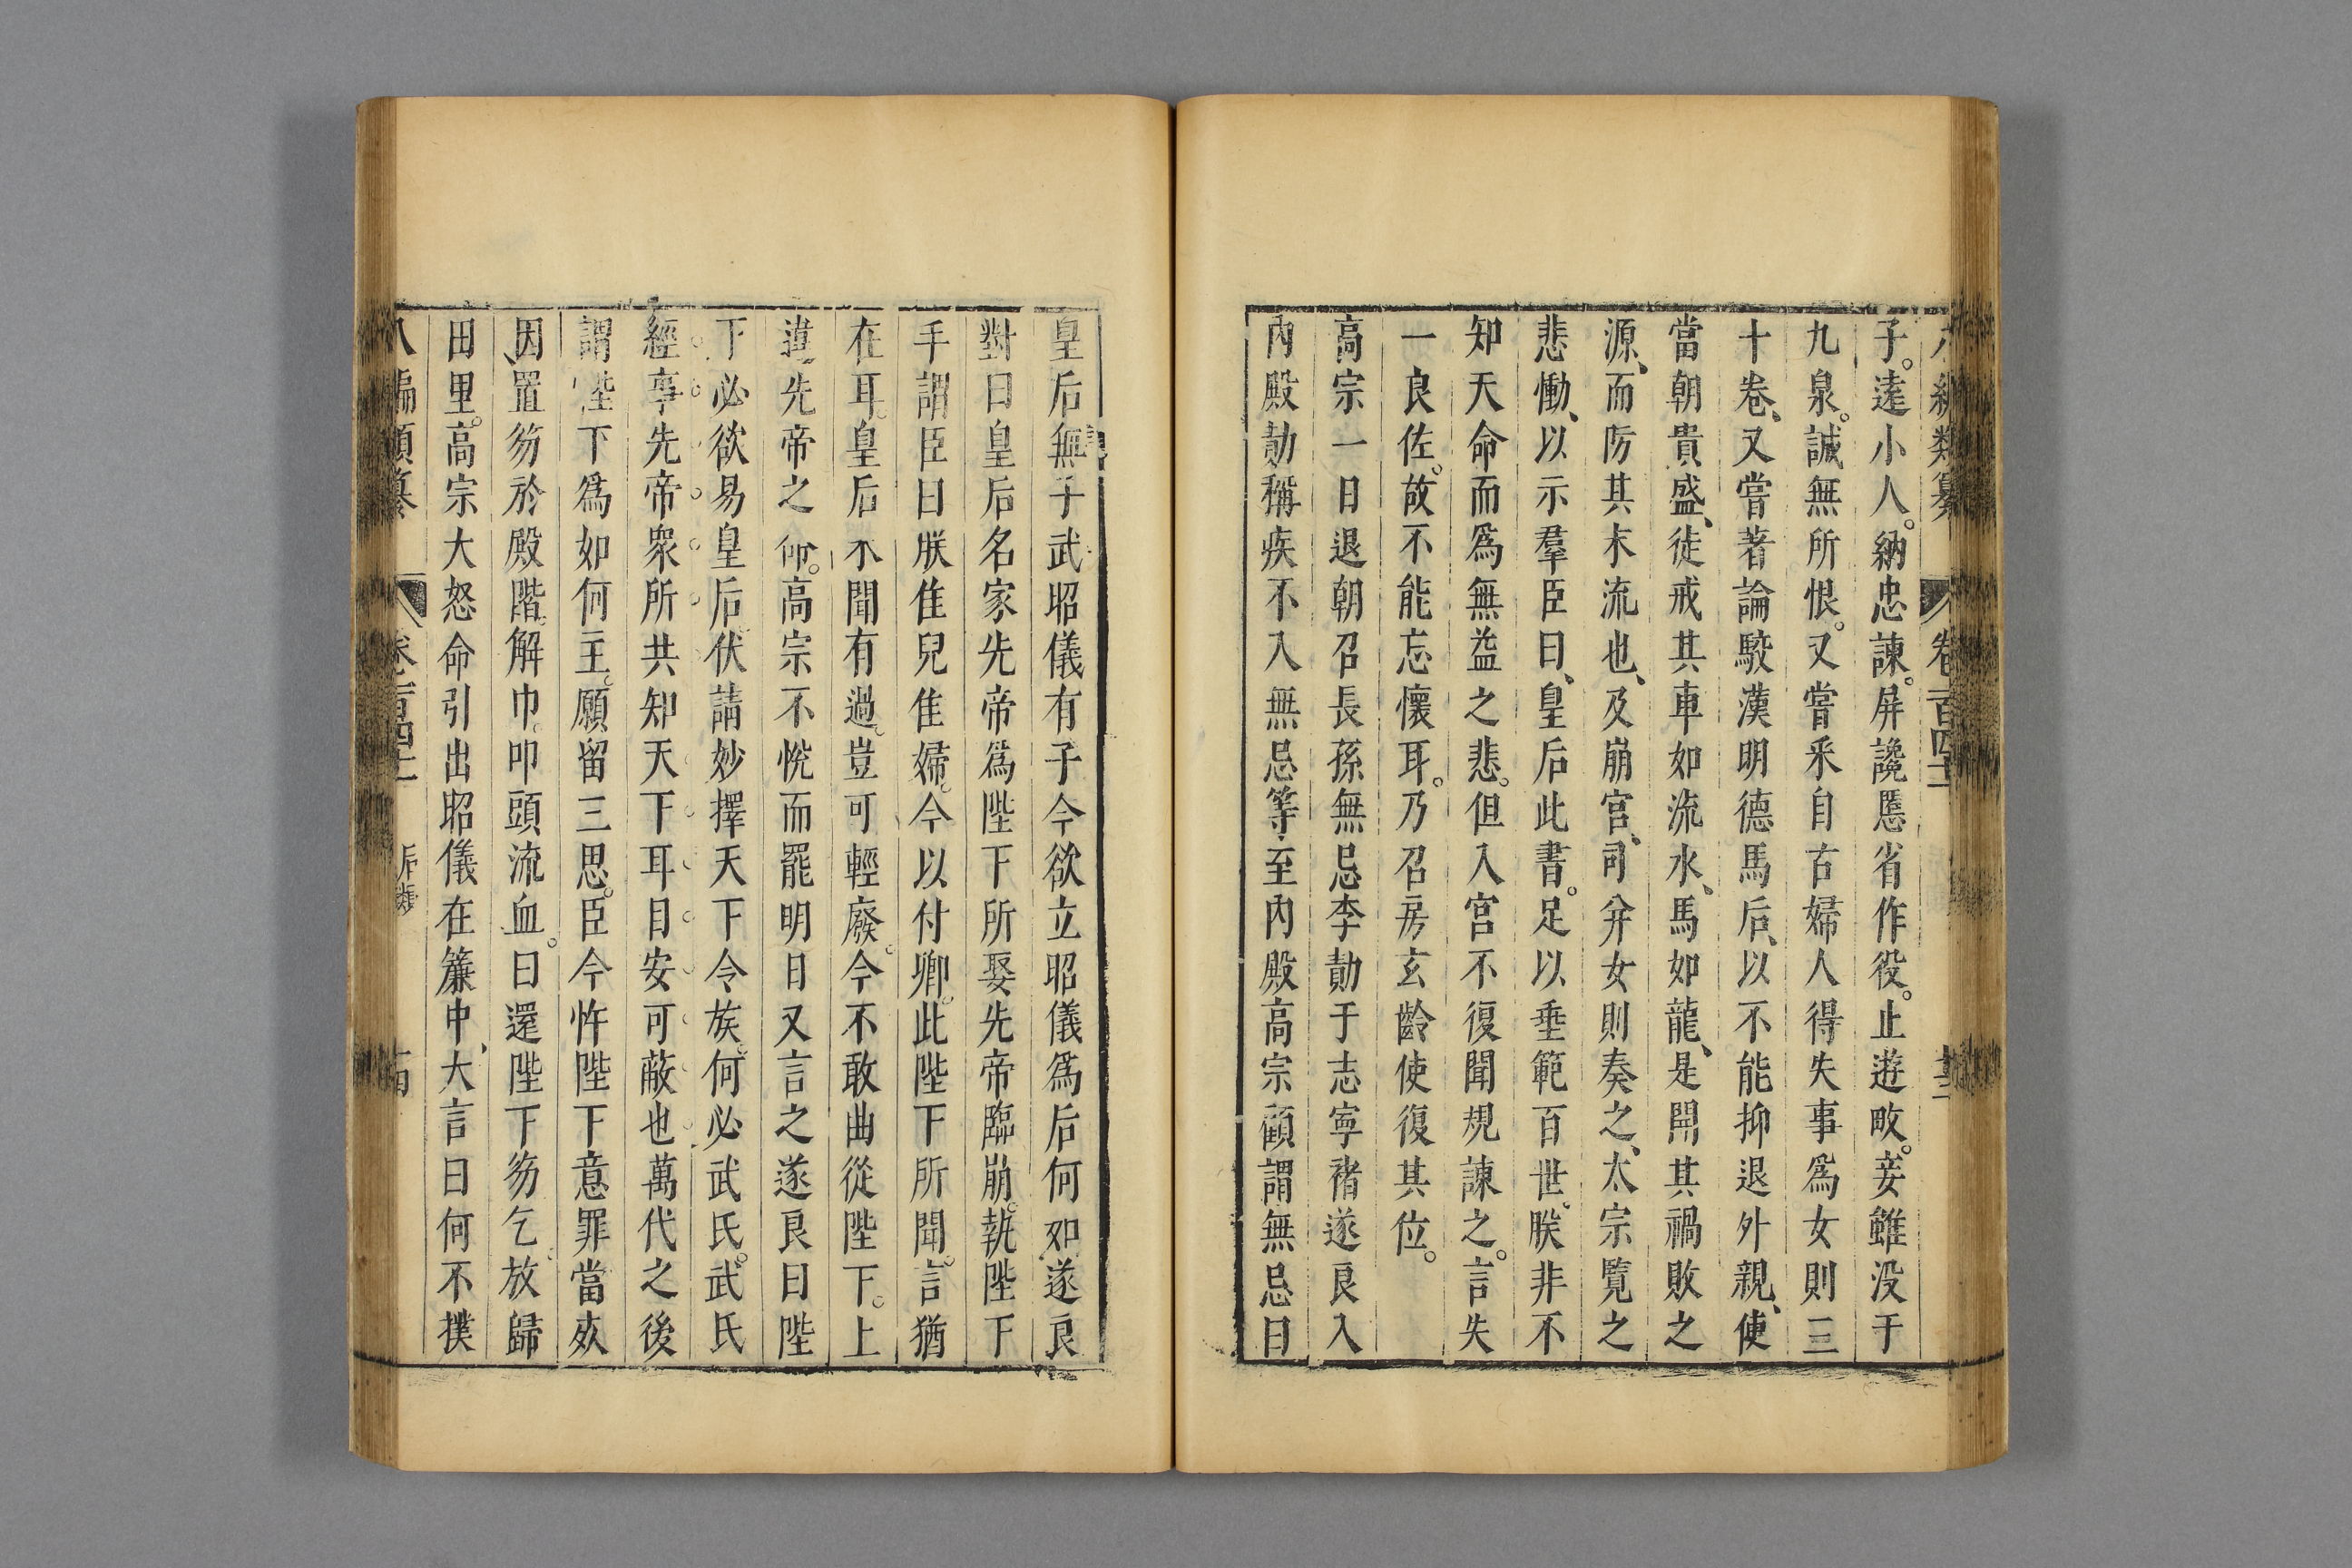 編類纂 卷一百四十二 十三
子。遠小人。納忠諫。屏讒慝省作役。止遊畋。妾雖没于
九泉。誠無所恨。又嘗采自古婦人得失事爲女則三
十卷、又嘗著論駮漢明德馬后、以不能抑退外親、使
當朝貴盛、徒戒其車如流水、馬如龍、是開其禍敗之
源、而防其末流也、及崩宫、司弁女則奏之、太宗覽之
悲慟、以示羣臣曰、皇后此書。足以垂範百世。朕非不
知天命而爲無益之悲。但入宫不復聞規諫之。言失
一良佐。故不能忘懷耳。乃召房玄齡使復其位。
高宗一日退朝召長孫無忌李勣于志寧褚遂良入
内殿勣稱疾不入無忌等至内殿高宗顧謂無忌曰
皇后無子武昭儀有子今欲立昭儀爲后何如遂良
對曰皇后名家先帝爲陛下所娶先帝臨崩。執陛下
手謂臣曰朕佳兒佳婦。今以付卿。此陛下所聞。言猶
在耳。皇后不聞有過。豈可輕廢。今不敢曲從陛下。上
違先帝之命。高宗不悅而罷明日又言之遂良曰陛
下必欲易皇后。伏請妙擇天下令族。何必武氏。武氏
經事先帝衆所共知天下耳目安可蔽也萬代之後
謂陛下爲如何主。願留三思。臣今忤陛下意罪當死
因置笏於殿階。解巾。叩頭流血。曰還陛下笏乞。放歸
田里。高宗大怒命引出昭儀在簾中、大言曰何不撲
八編類纂 卷一百四十二